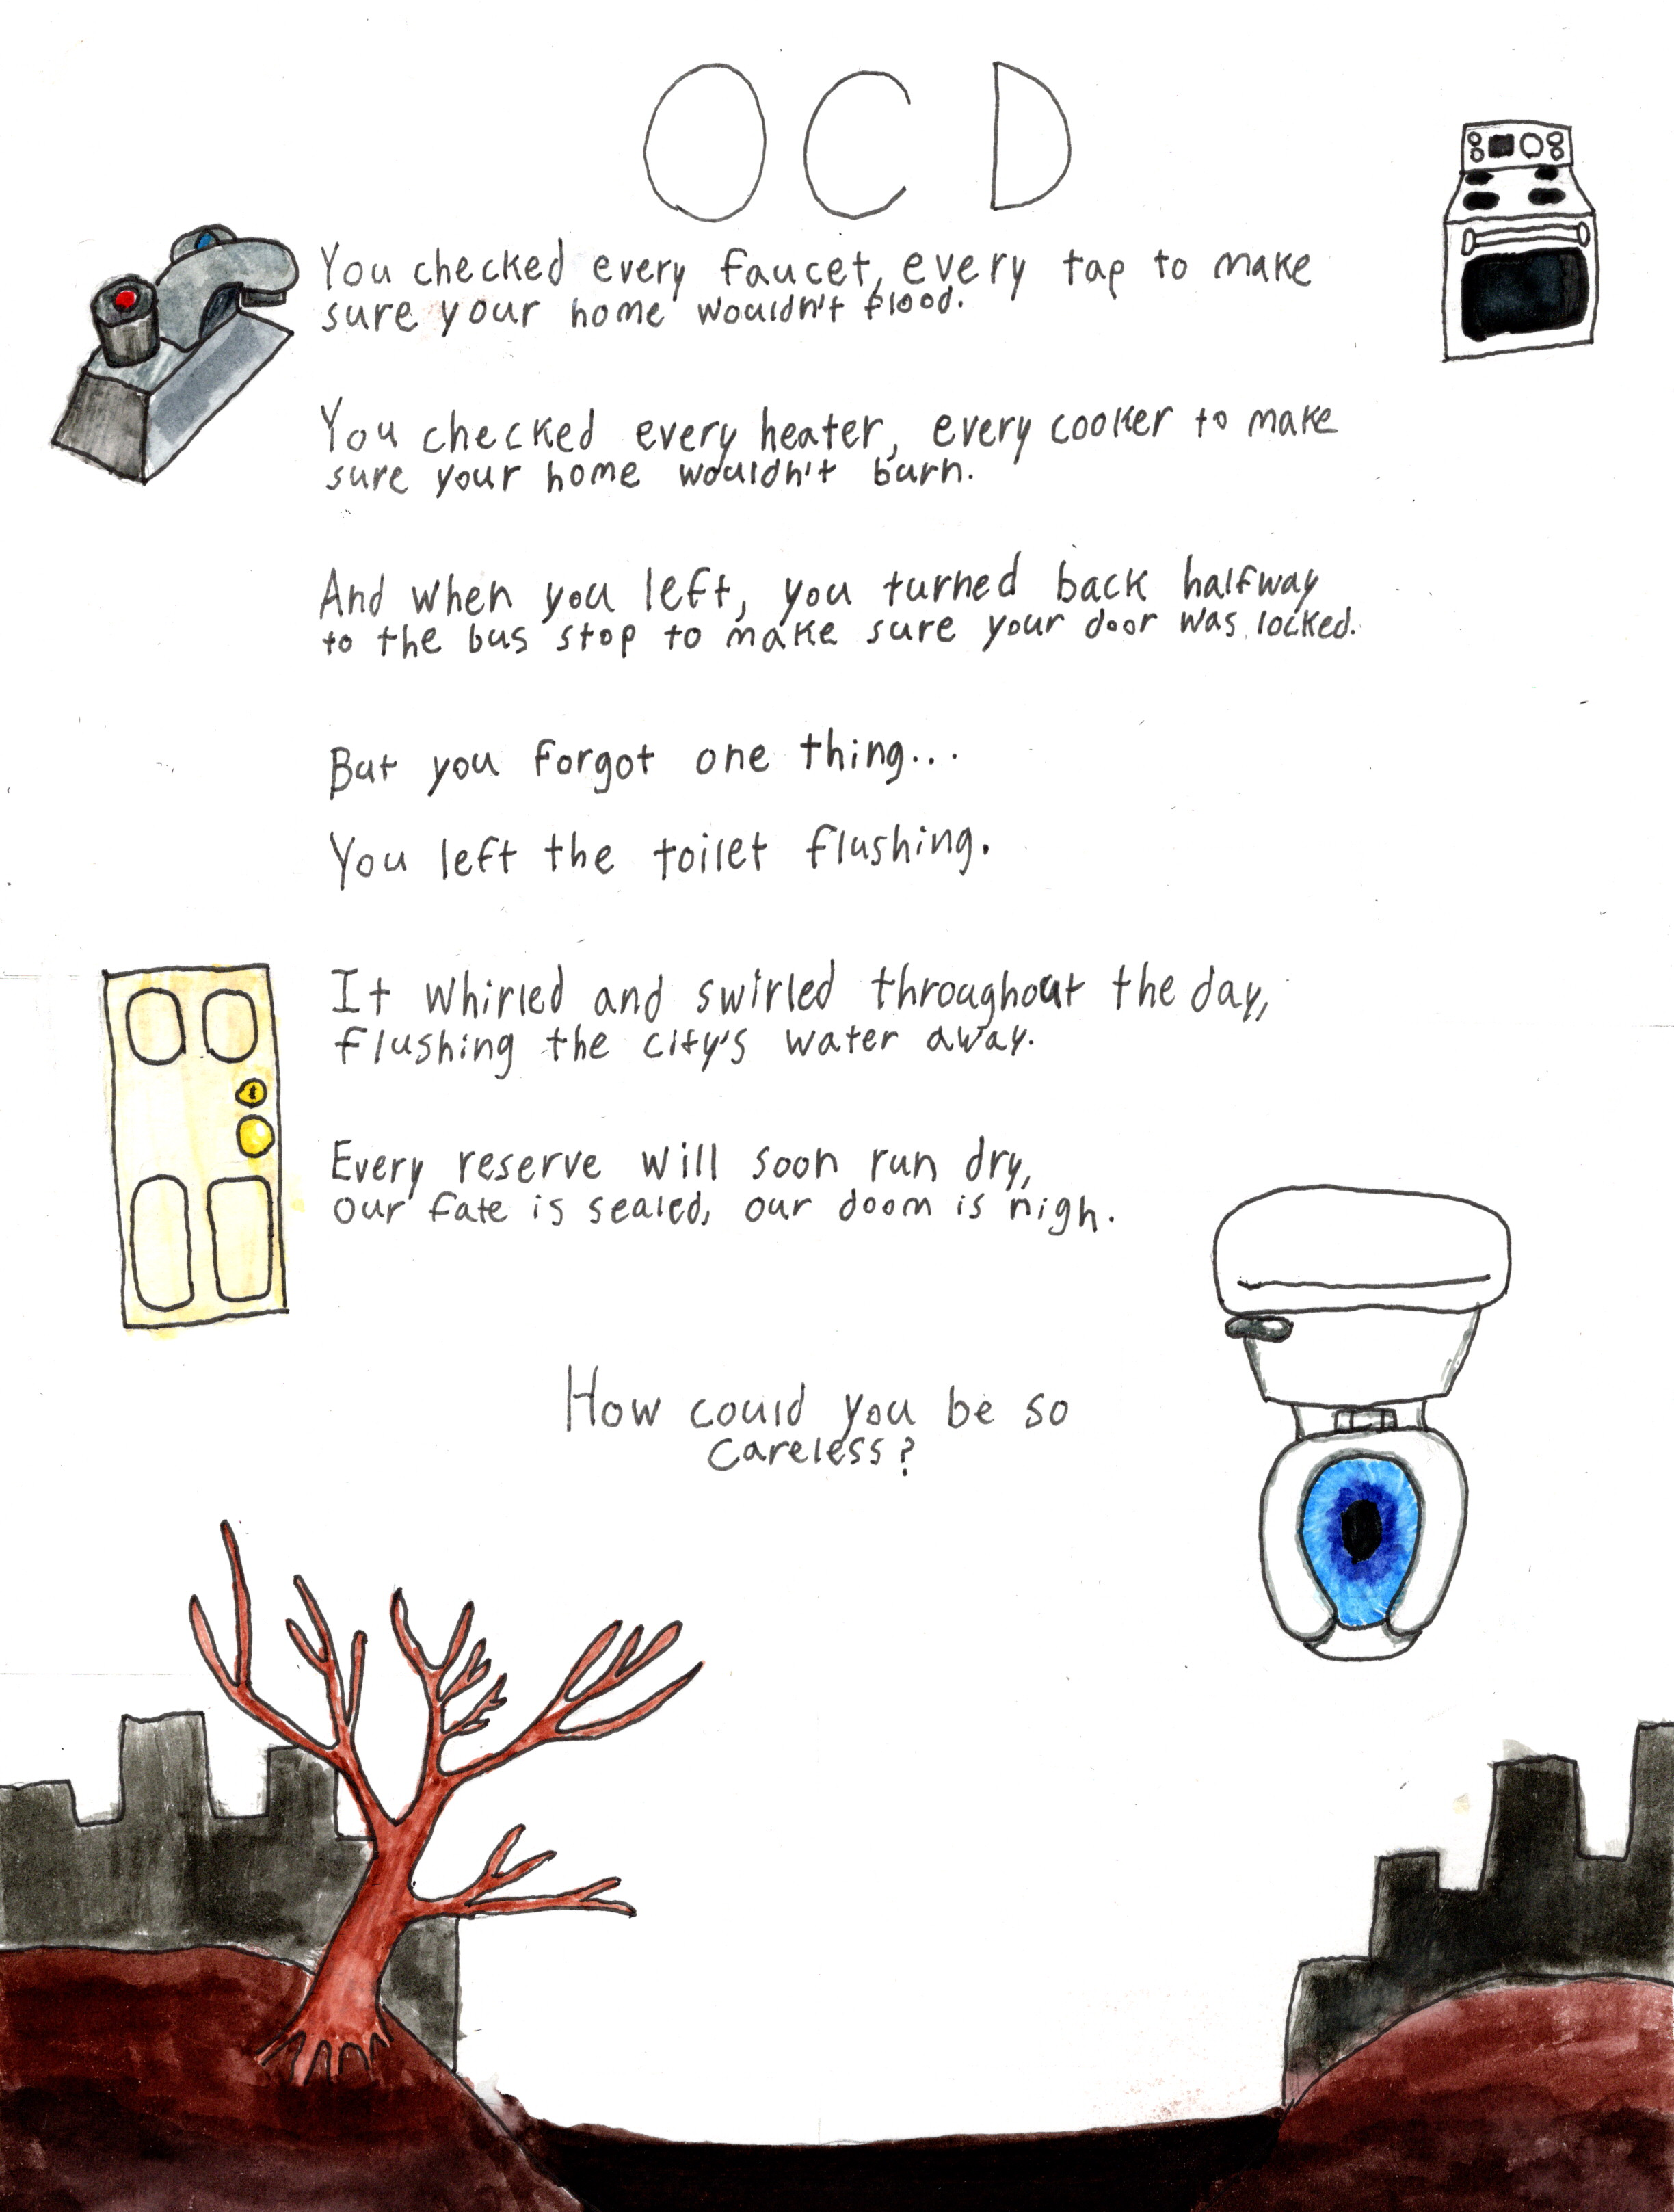 OCD
You checked every faucet, every tap to make
sure your home wouldn't flood.
You checked every heater, every cooker to make
sure your home wouldn't burn.
And when you left, you turned back halfway
to the bus stop to make sure your door was locked.
But you forgot one thing...
You left the toilet flushing.
It whirled and swirled throughout the day,
flushing the city's water away.
Every reserve will soon run dry,
our fate is sealed, our doom is nigh.
How could you be so
careless?